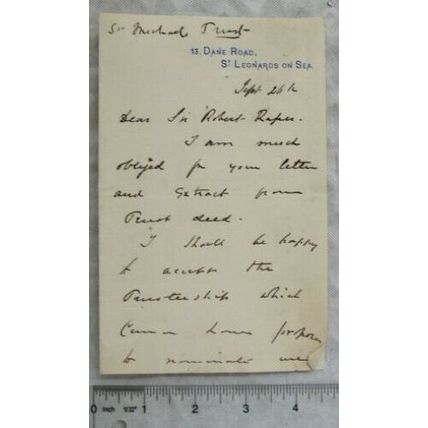 St Michael Trust
13. DANE ROAD,
ST LEONARDS ON SEA.
Sept 26th
Dear Sir Robert Raper.
I am much
obliged for your letter
and Extract from
Trust deed.
I should be happy
to accept the
Trusteeship which
proposes
to nominate me
0 Inch 1/32" 1 2 3 4